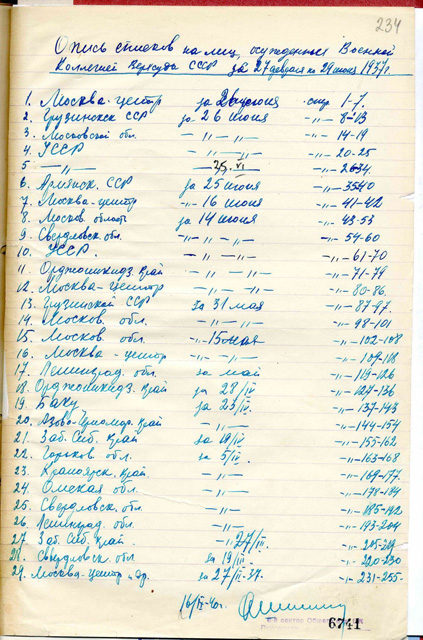 234
Опись списков на лиц, осужденных Военной
Коллегией Верхсуда СССР за 27 февраля по 29 июня 1937 г.
1. Москва-центр за июня стр. 1-7.
2. Грузинск ССР за 26 июня -"- 8-13
3. Московской обл. -"- -"- -"- 14-19
4. УССР -"- -"- -"- 20-25
5. -"- 25.VI -"- 26-34.
6. Армянск. ССР за 25 июня -"- 35-40
7. Москва-центр -"- 16 июня -"- 41-42
8. Москов. область за 14 июня -"- 43-53
9. Свердловск. обл. -"- -"- -"- 54-60
10. УССР. -"- -"- -"- 61-70
11. Орджоникидз. край -"- -"- -"- 71-79
12. Москва-центр -"- -"- -"- 80-86.
13. Грузинской ССР за 31 мая -"- 87-97.
14. Москов. обл. -"- -"- -"- 98-101
15. Москов. обл. -"- 15 мая -"- 102-108
16. Москва-центр -"- -"- -"- 109-118
17. Ленинград. обл. за май -"- 119-126
18. Орджоникидз. край за 28/IV -"- 127-136
19. Баку за 23/IV. -"- 137-143
20. Азово-Черномор. край -"- -"- 144-154
21. Зап. Сиб. край за 19/IV -"- 155-162
22. Горьков. обл. за 5/IV. -"- 163-168
23. Красноярск. край. -"- -"- 169-177.
24. Омская обл. -"- -"- 178-184
25. Свердловск. обл. -"- -"- 185-192
26. Ленинград. обл. -"- -"- 193-204
27. Зап. Сиб. край. -"- 27/III. -"- 205-219
28. Свердловск. обл. за 19/III. -"- 220-230
29. Москва-центр и др. за 27/II-37. -"- 231-255-
6741